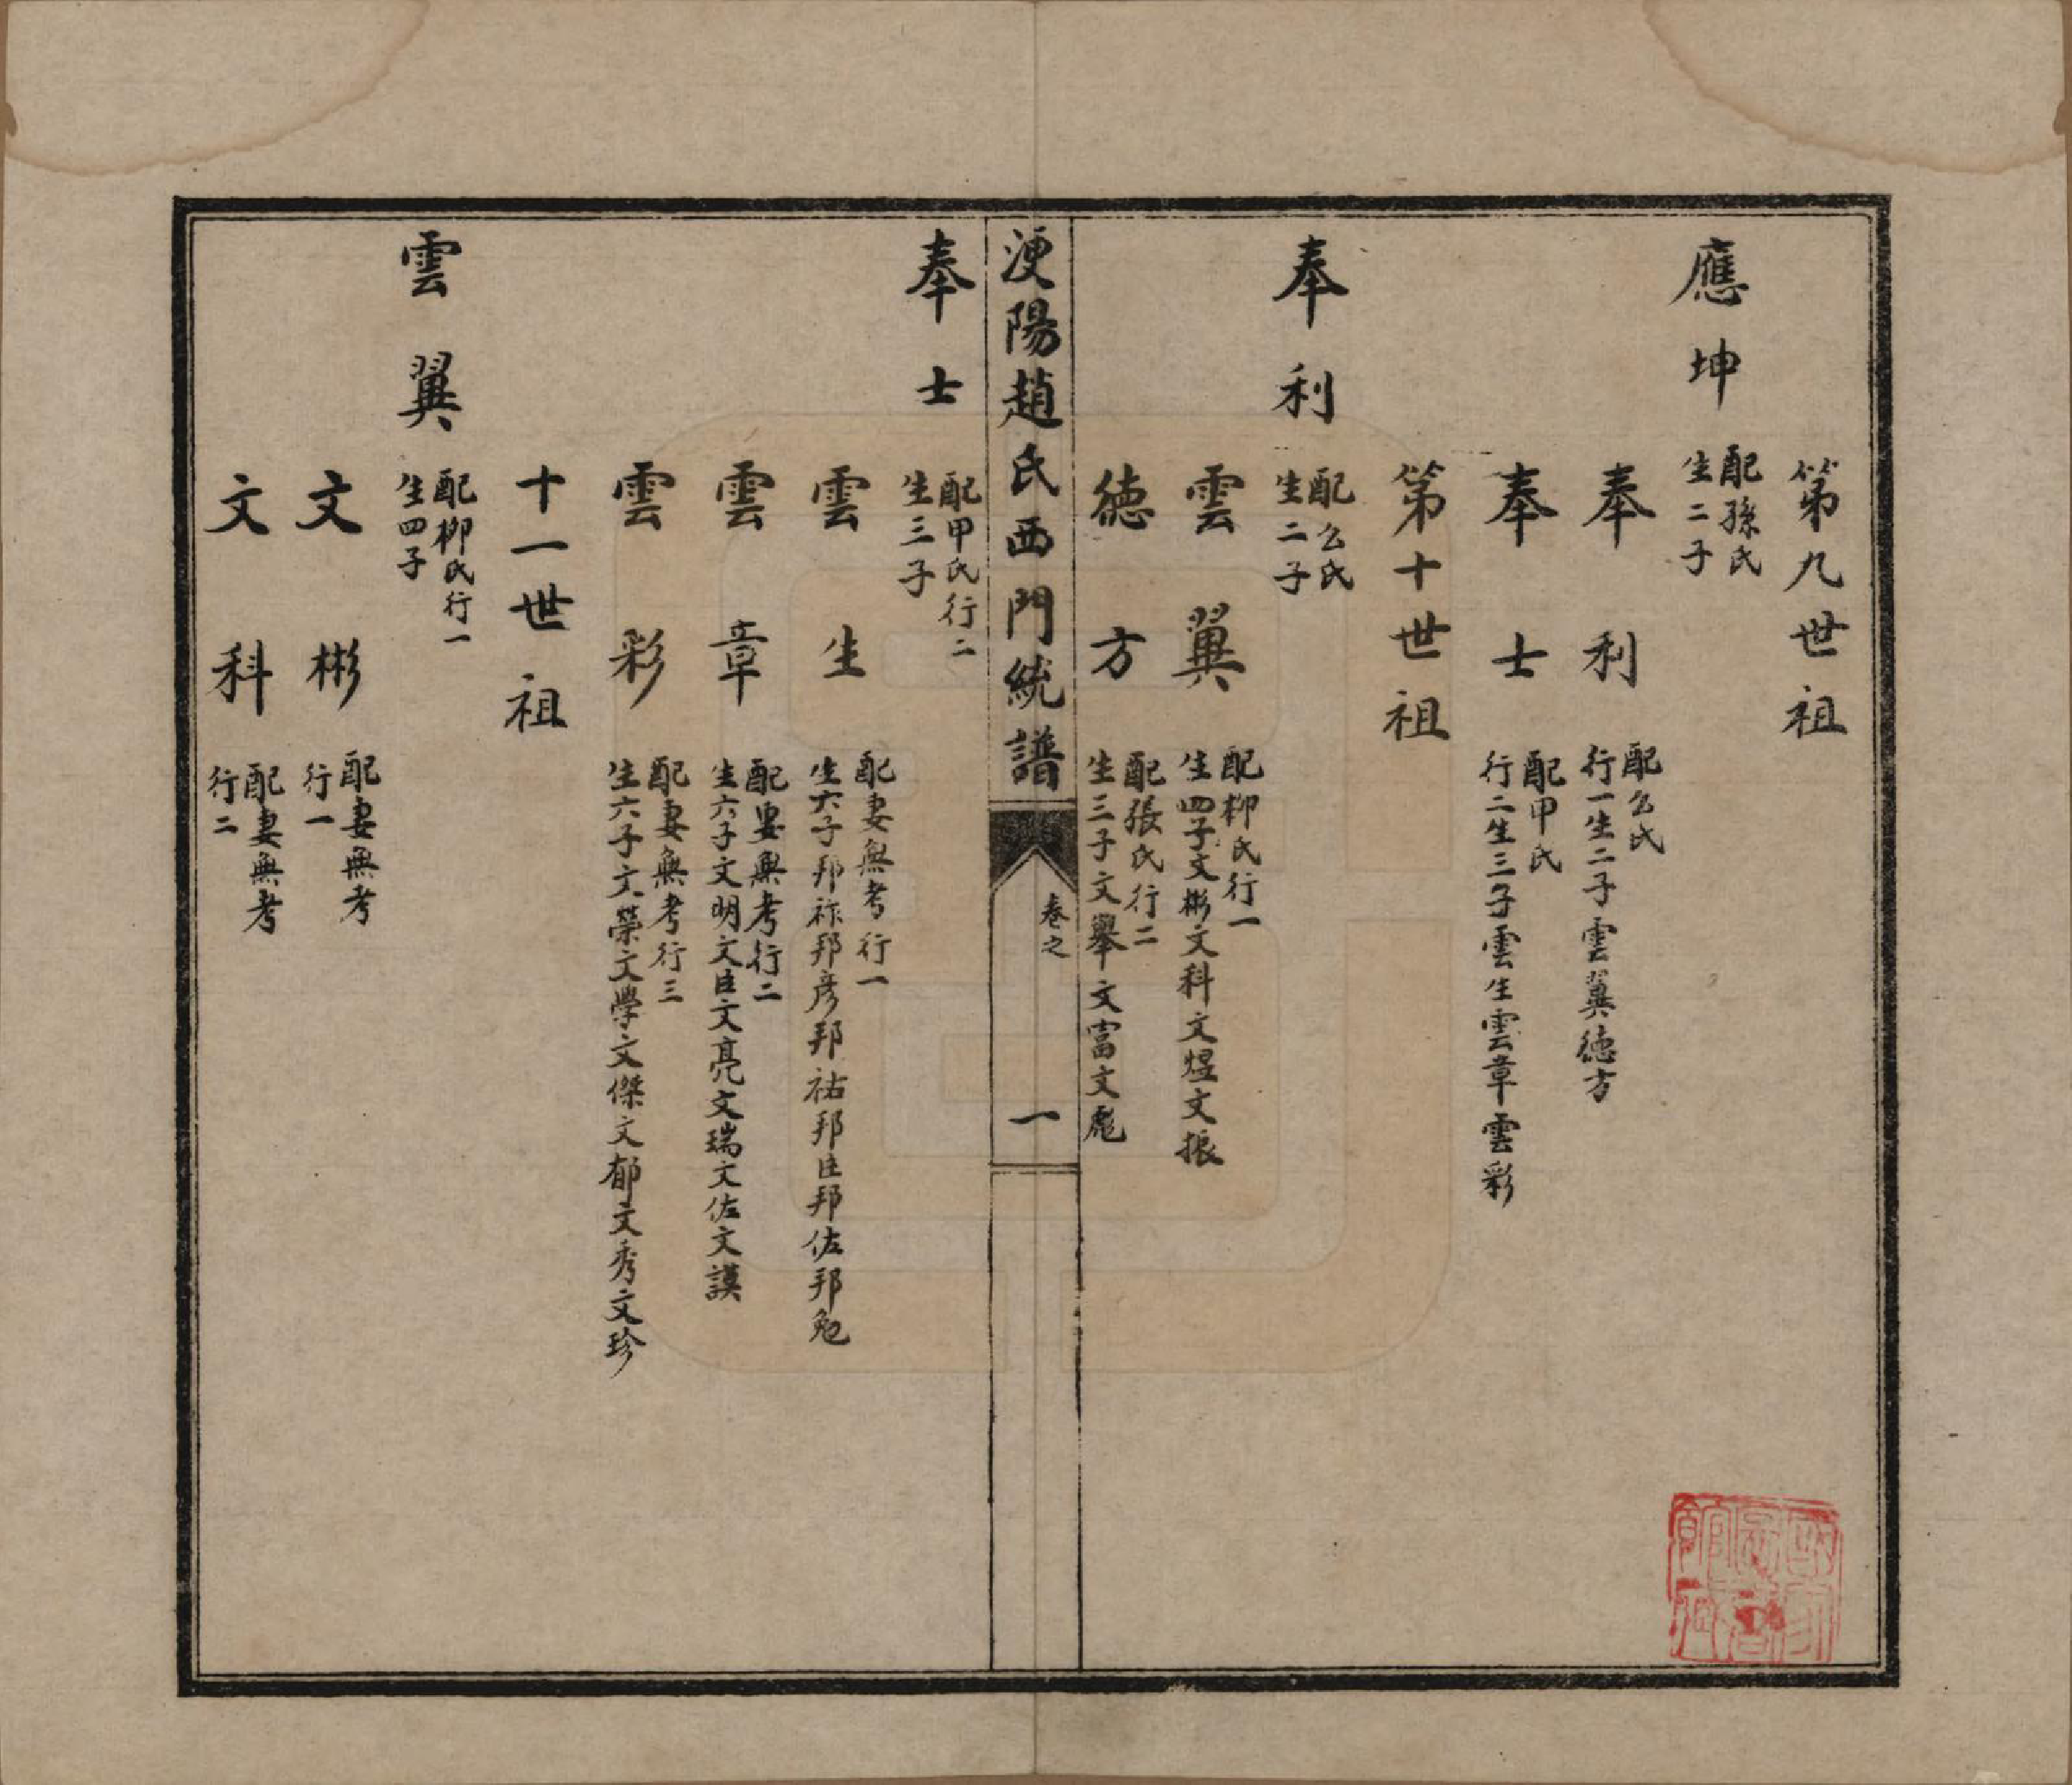 第九世祖
應坤
配孫氏
生二子
奉利
配公氏
行一生二子雲翼德方
奉士
配甲氏
行二生三子雲生雲章雲彩
第十世祖
奉利
配公氏
生二子
雲翼
配柳氏行一
生四子文彬文科文煜文振
德方
配張氏行二
生三子文舉文富文彪
浭陽趙氏西門統譜
卷之
一
奉士
配甲氏行二
生三子
雲生
配妻無考行一
生六子邦祚邦彥邦祐邦臣邦佐邦勉
雲章
配妻無考行二
生六子文明文臣文亮文瑞文佐文謨
雲彩
配妻無考行三
生六子文榮文學文傑文郁文秀文珍
十一世祖
雲翼
配柳氏行一
生四子
文彬
配妻無考
行一
文科
配妻無考
行二